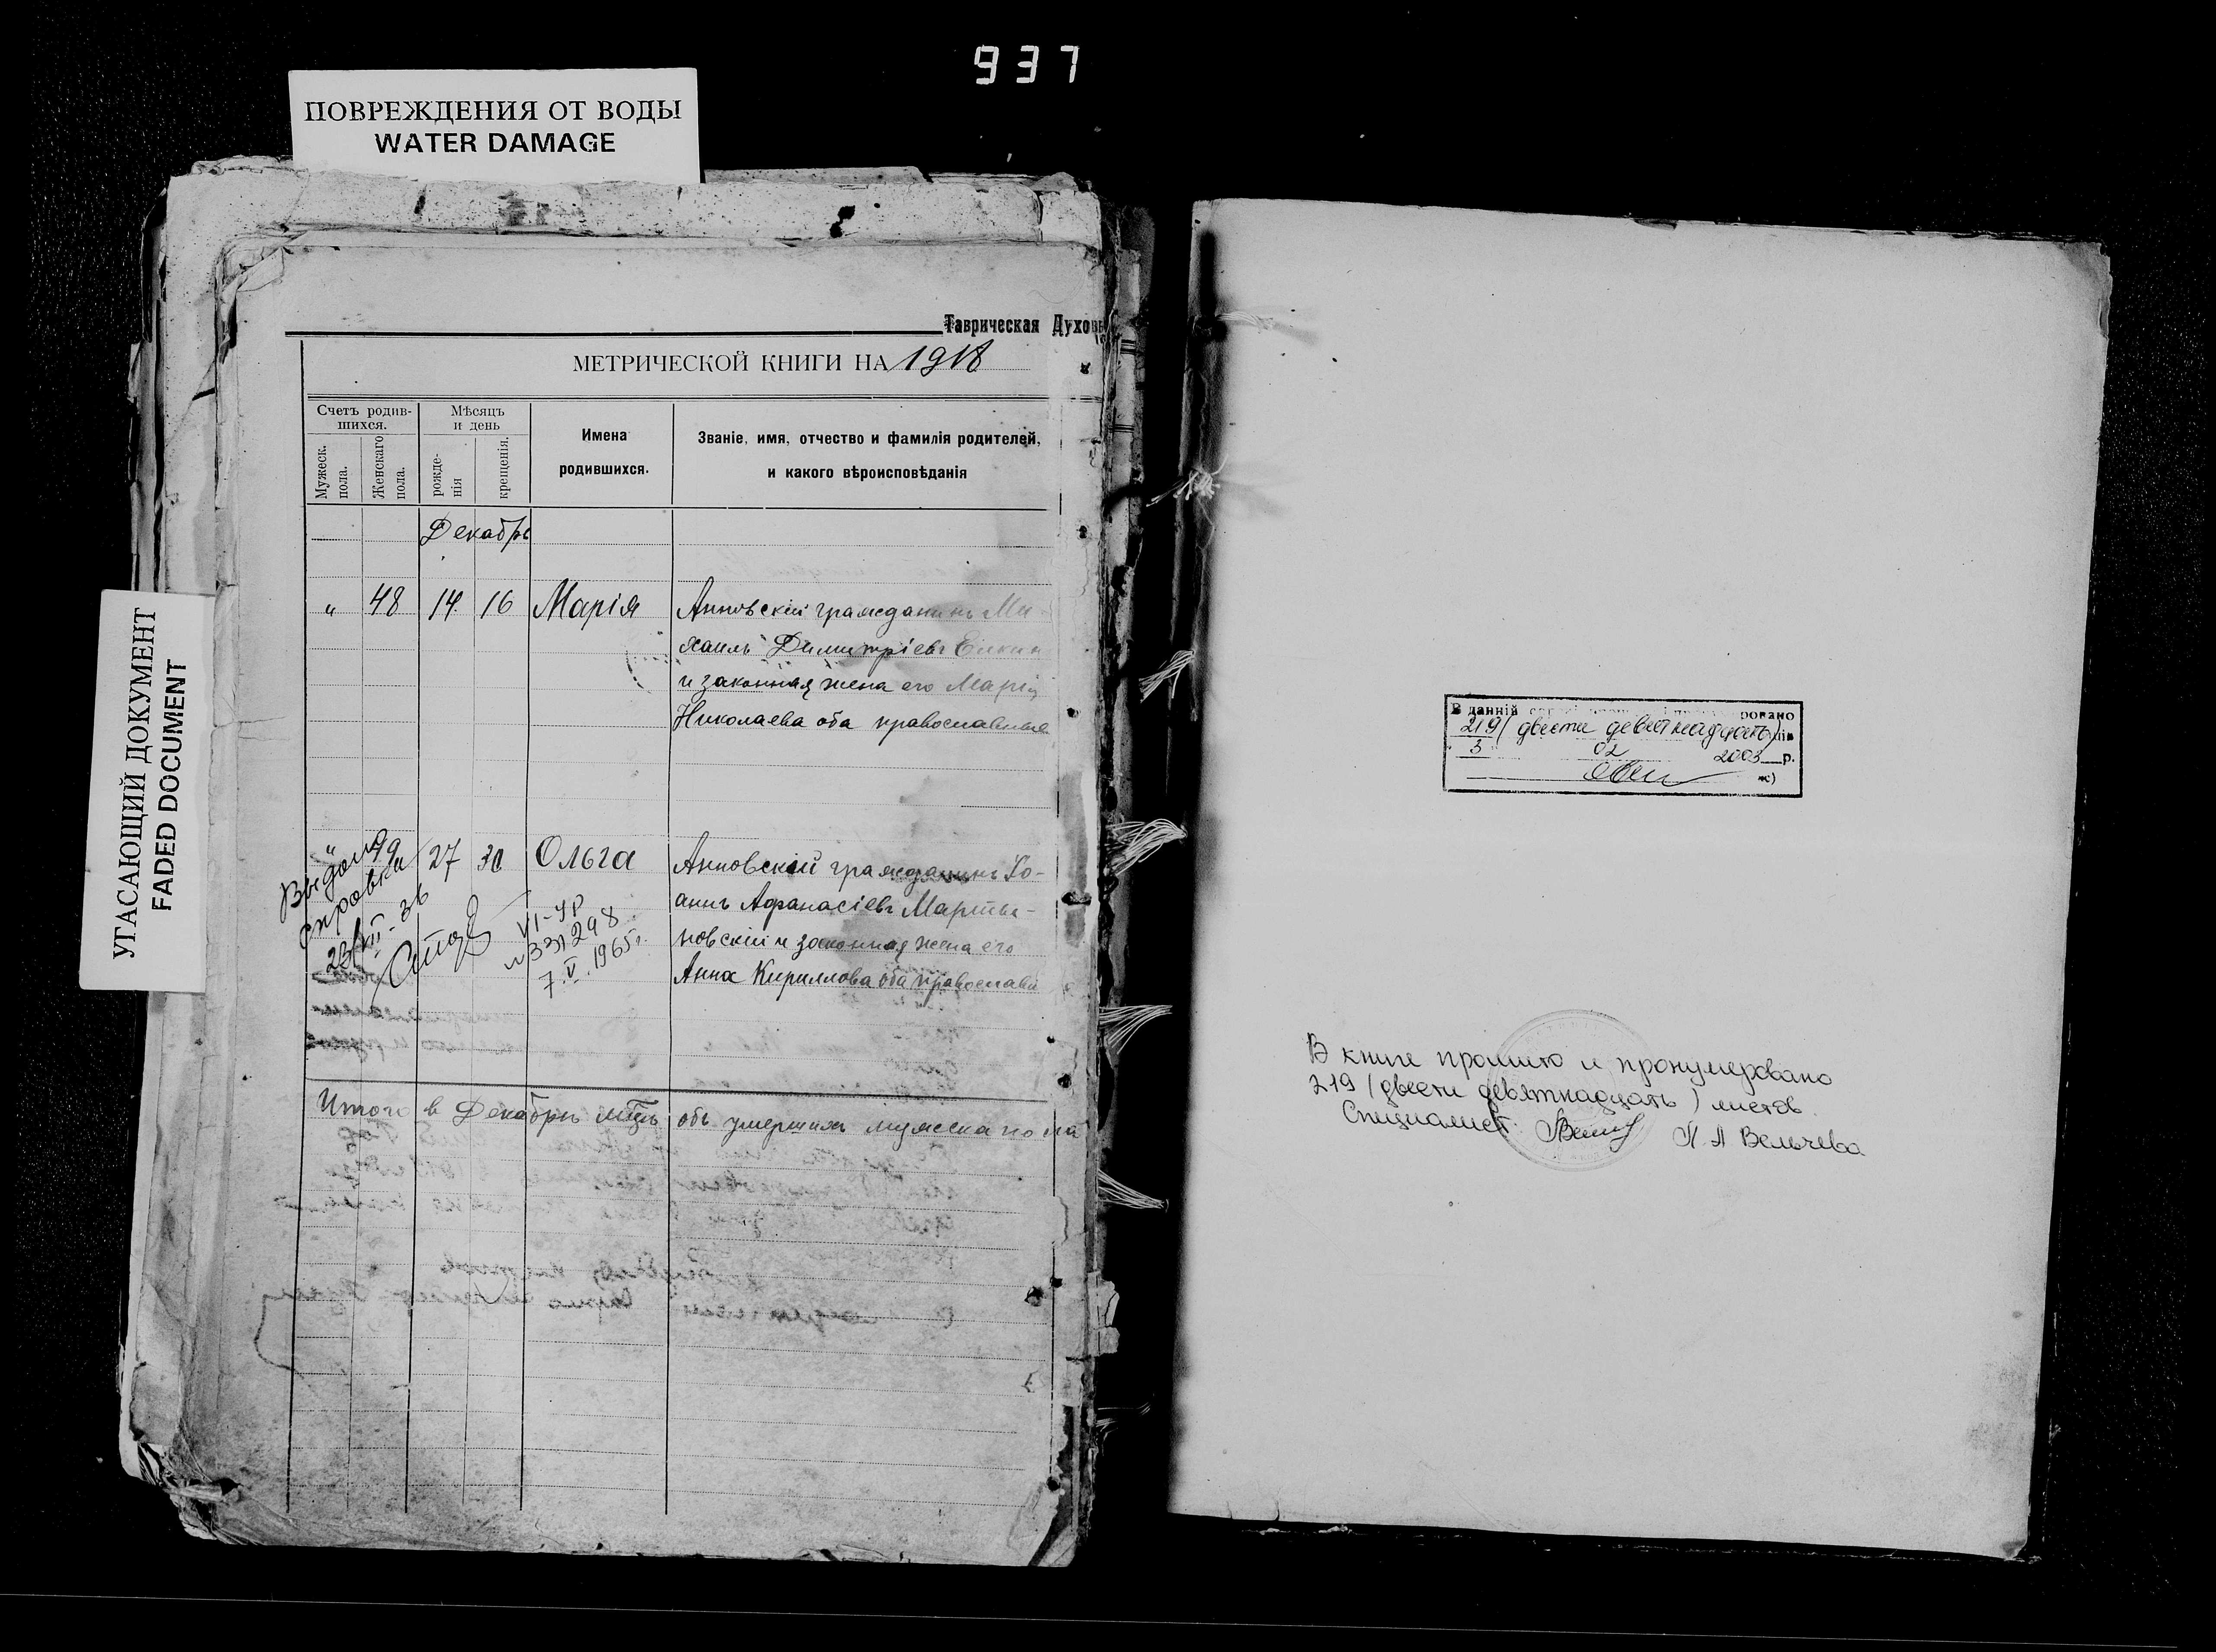 937
ПОВРЕЖДЕНИЯ ОТ ВОДЫ
WATER DAMAGE
УГАСАЮЩИЙ ДОКУМЕНТ
FADED DOCUMENT
Таврическая Духов
МЕТРИЧЕСКОЙ КНИГИ НА 1918
Счетъ родив-
шихся.
Мужеск.
пола.
Женскаго
пола.
Мѣсяцъ
и день
рожде-
нія
крещенія.
Имена
родившихся.
Званіе, имя, отчество и фамилія родителей,
и какого вѣроисповѣданія
Декабрь
" 48 14 16 Марія
Анновскій гражданинъ Ми-
хаилъ Димитріевъ
и законная жена его Марія
Николаева оба православные
" 49 27 30 Ольга
Анновскій гражданинъ Іо-
аннъ Афанасіевъ Марты-
новскій и законная жена его
Анна Кириллова оба православн
Выдана
справка
23/XII-36
VI-УР
№331298
7.V.1965г.
Итого в Декабрѣ мцѣ объ умершихъ мужеска по
В данній
219 (двести девятнадцать)
3 02 2003 р.
В книге прошито и пронумеровано
219 (двести девятнадцать) листов
Специалист Л А Вельчева